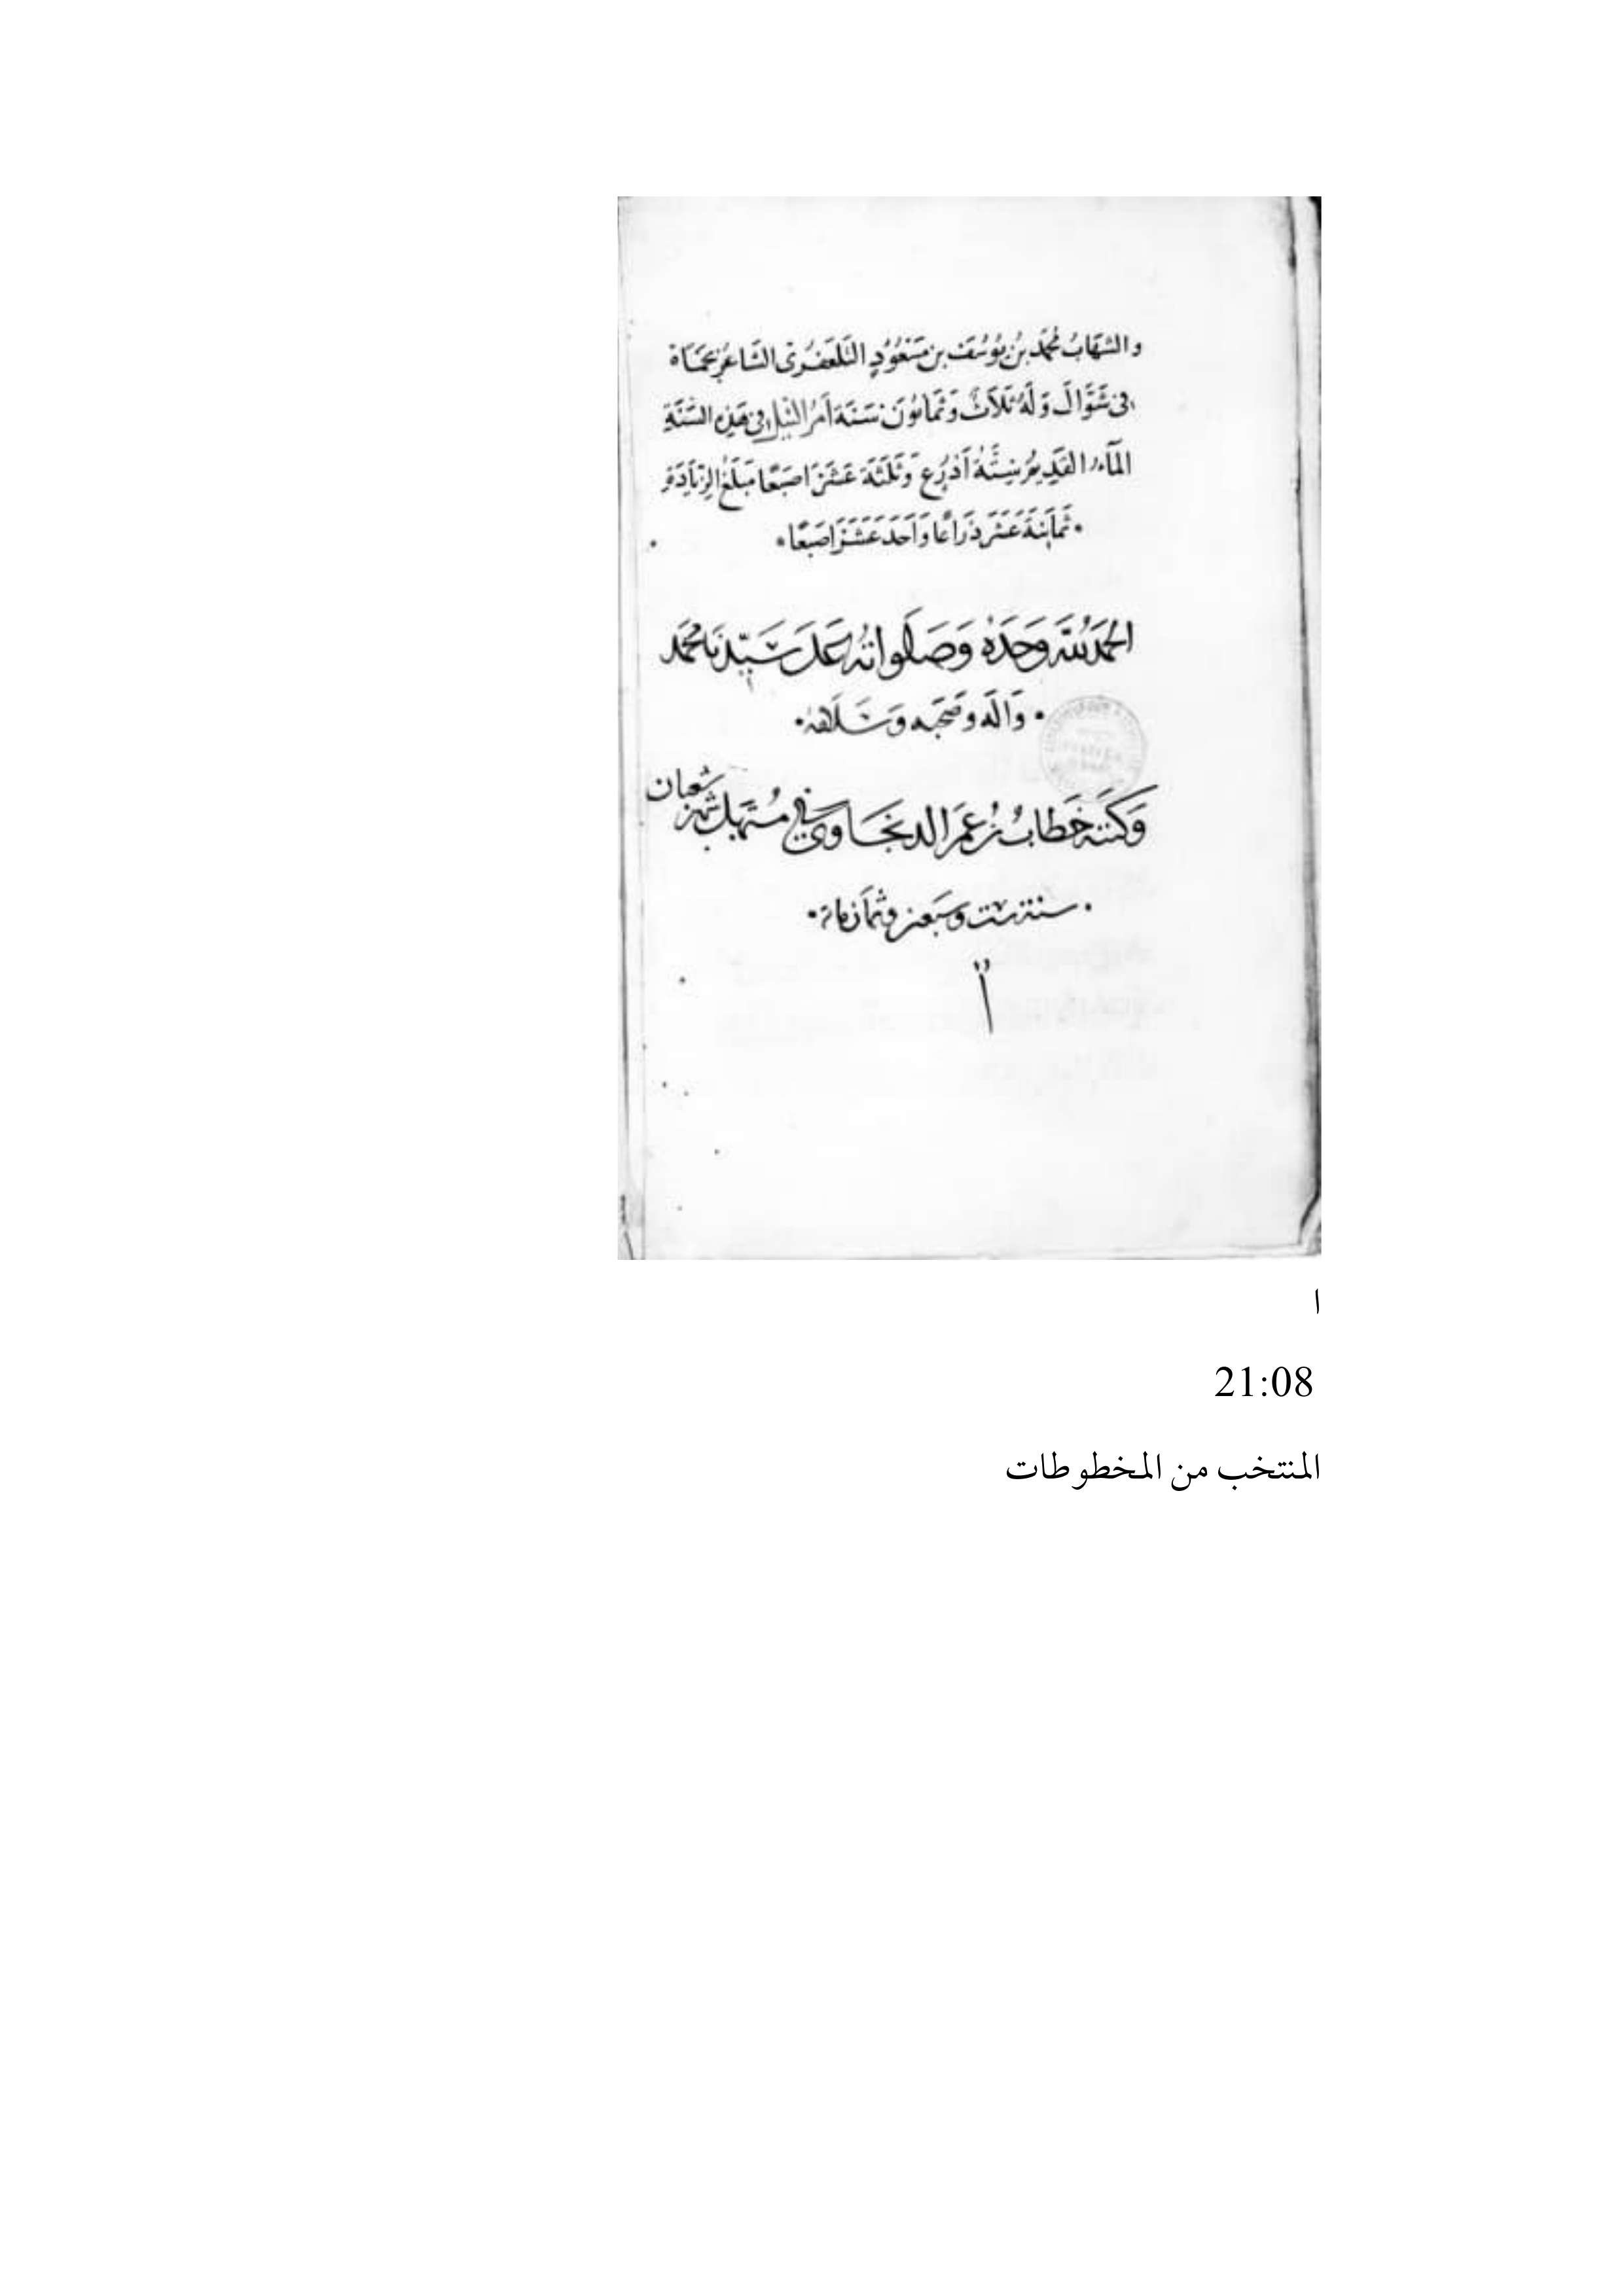 والشهاب محمد بن يوسف بن مسعود التلعفرى الشاعر بحماة
فى شوال وله ثلاث وثمانون سنة أمر النيل فى هذه السنة
المآء القديم ستة أذرع وثلثة عشر اصبعا مبلغ الزيادة
ثمانية عشر ذراعا واحد عشر اصبعا
الحمد لله وحده وصلواته على سيدنا محمد
واله وصحبه وسلامه
وكتبه خطاب بن عمر الدنجاوي في مستهل شهر شعبان
سنة ست وسبعين وثمانمائة
ا
21:08
المنتخب من المخطوطات